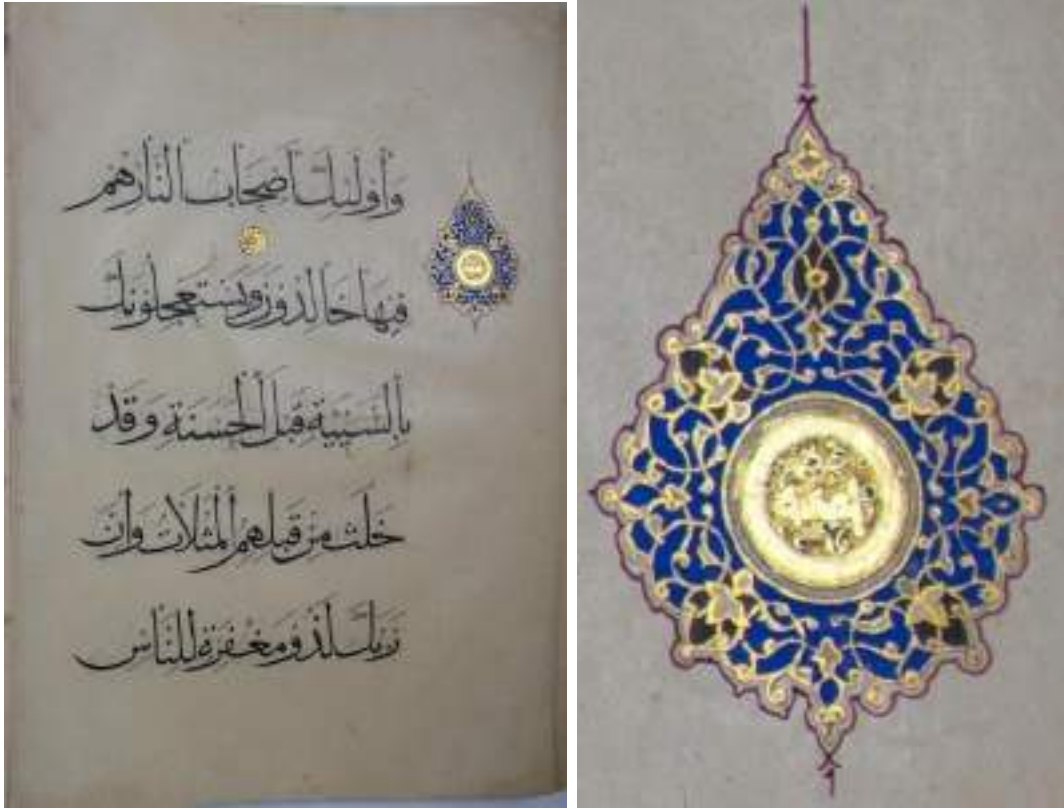 وَأُولَئِكَ أَصْحَابُ النَّارِ هُمْ
فِيهَا خَالِدُونَ وَيَسْتَعْجِلُونَكَ
بِالسَّيِّئَةِ قَبْلَ الْحَسَنَةِ وَقَدْ
خَلَتْ مِنْ قَبْلِهِمُ الْمَثُلَاتُ وَإِنَّ
رَبَّكَ لَذُو مَغْفِرَةٍ لِلنَّاسِ